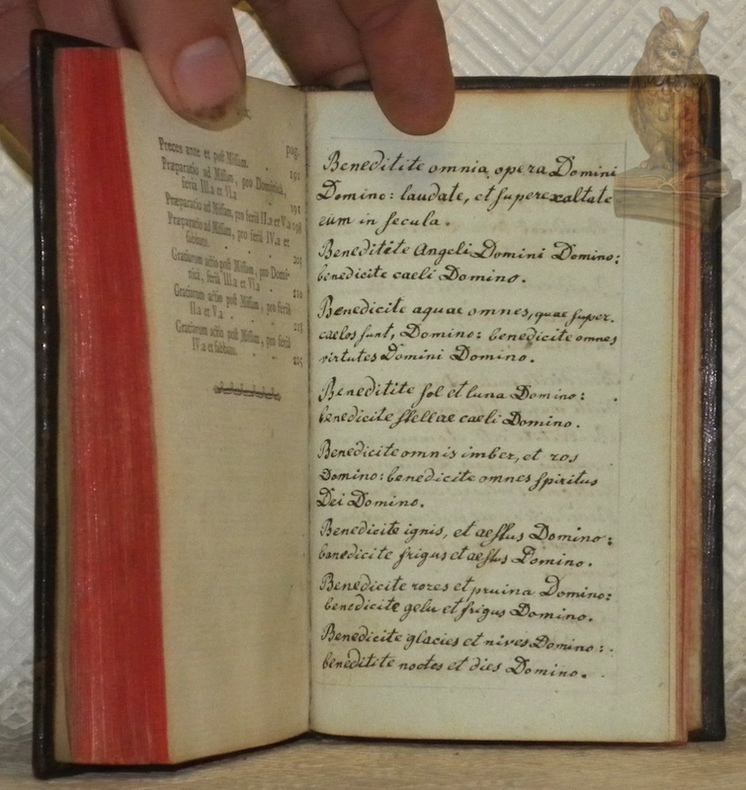 Preces ante et post Missam. pag. 190
Præparatio ad Missam, pro Dominica,
feria III.a et VI.a 191
Præparatio ad Missam, pro feria II.a et V.a 198
Præparatio ad Missam, pro feria IV.a et
sabbato. 203
Gratiarum actio post Missam, pro Domi-
nica, feria III.a et VI.a 210
Gratiarum actio post Missam, pro feria
II.a et V.a 215
Gratiarum actio post Missam, pro feria
IV.a et sabbato. 225
Beneditite omnia opera Domini
Domino: laudate, et superexaltate
eum in secula.
Beneditite Angeli Domini Domino:
benedicite caeli Domino.
Benedicite aquae omnes, quae super.
caelos sunt, Domino: benedicite omnes
virtutes Domini Domino.
Beneditite sol et luna Domino:
benedicite stellae caeli Domino.
Benedicite omnis imber, et ros
Domino: benedicite omnes spiritus
Dei Domino.
Benedicite ignis, et aestus Domino:
benedicite frigus et aestus Domino.
Benedicite rores et pruina Domino:
benedicite gelu et frigus Domino.
Benedicite glacies et nives Domino:
beneditite noctes et dies Domino.